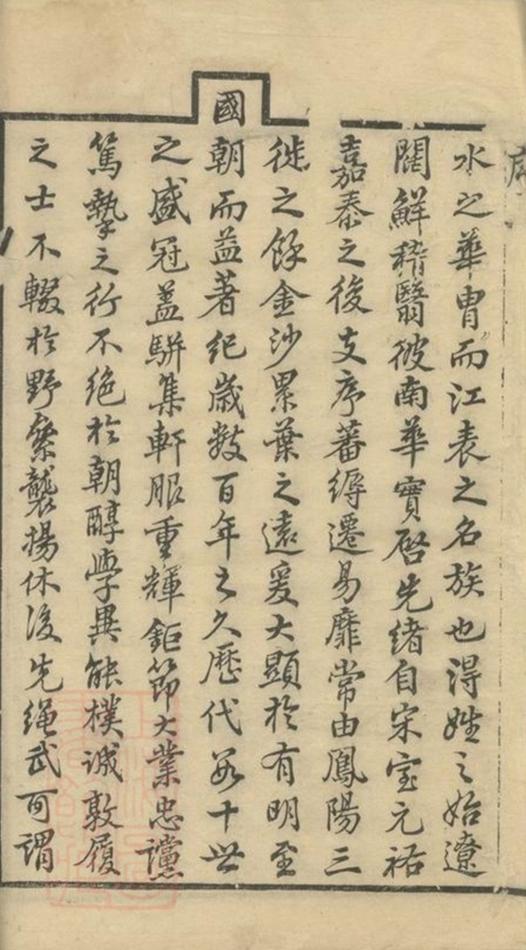 水之華胄而江表之名族也得姓之始遼
闊鮮稽翳彼南華實啓先緒自宋室元祐
嘉泰之後支序蕃縟遷易靡常由鳳陽三
徙之餘金沙累葉之遠爰大顯於有明至
國朝而益著紀歲數百年之久歷代數十世
之盛冠蓋駢集軒服重輝鉅節大業忠讜
篤摯之行不絕於朝醇學異能樸誠敦履
之士不輟於野縻襲揚休後先繩武可謂